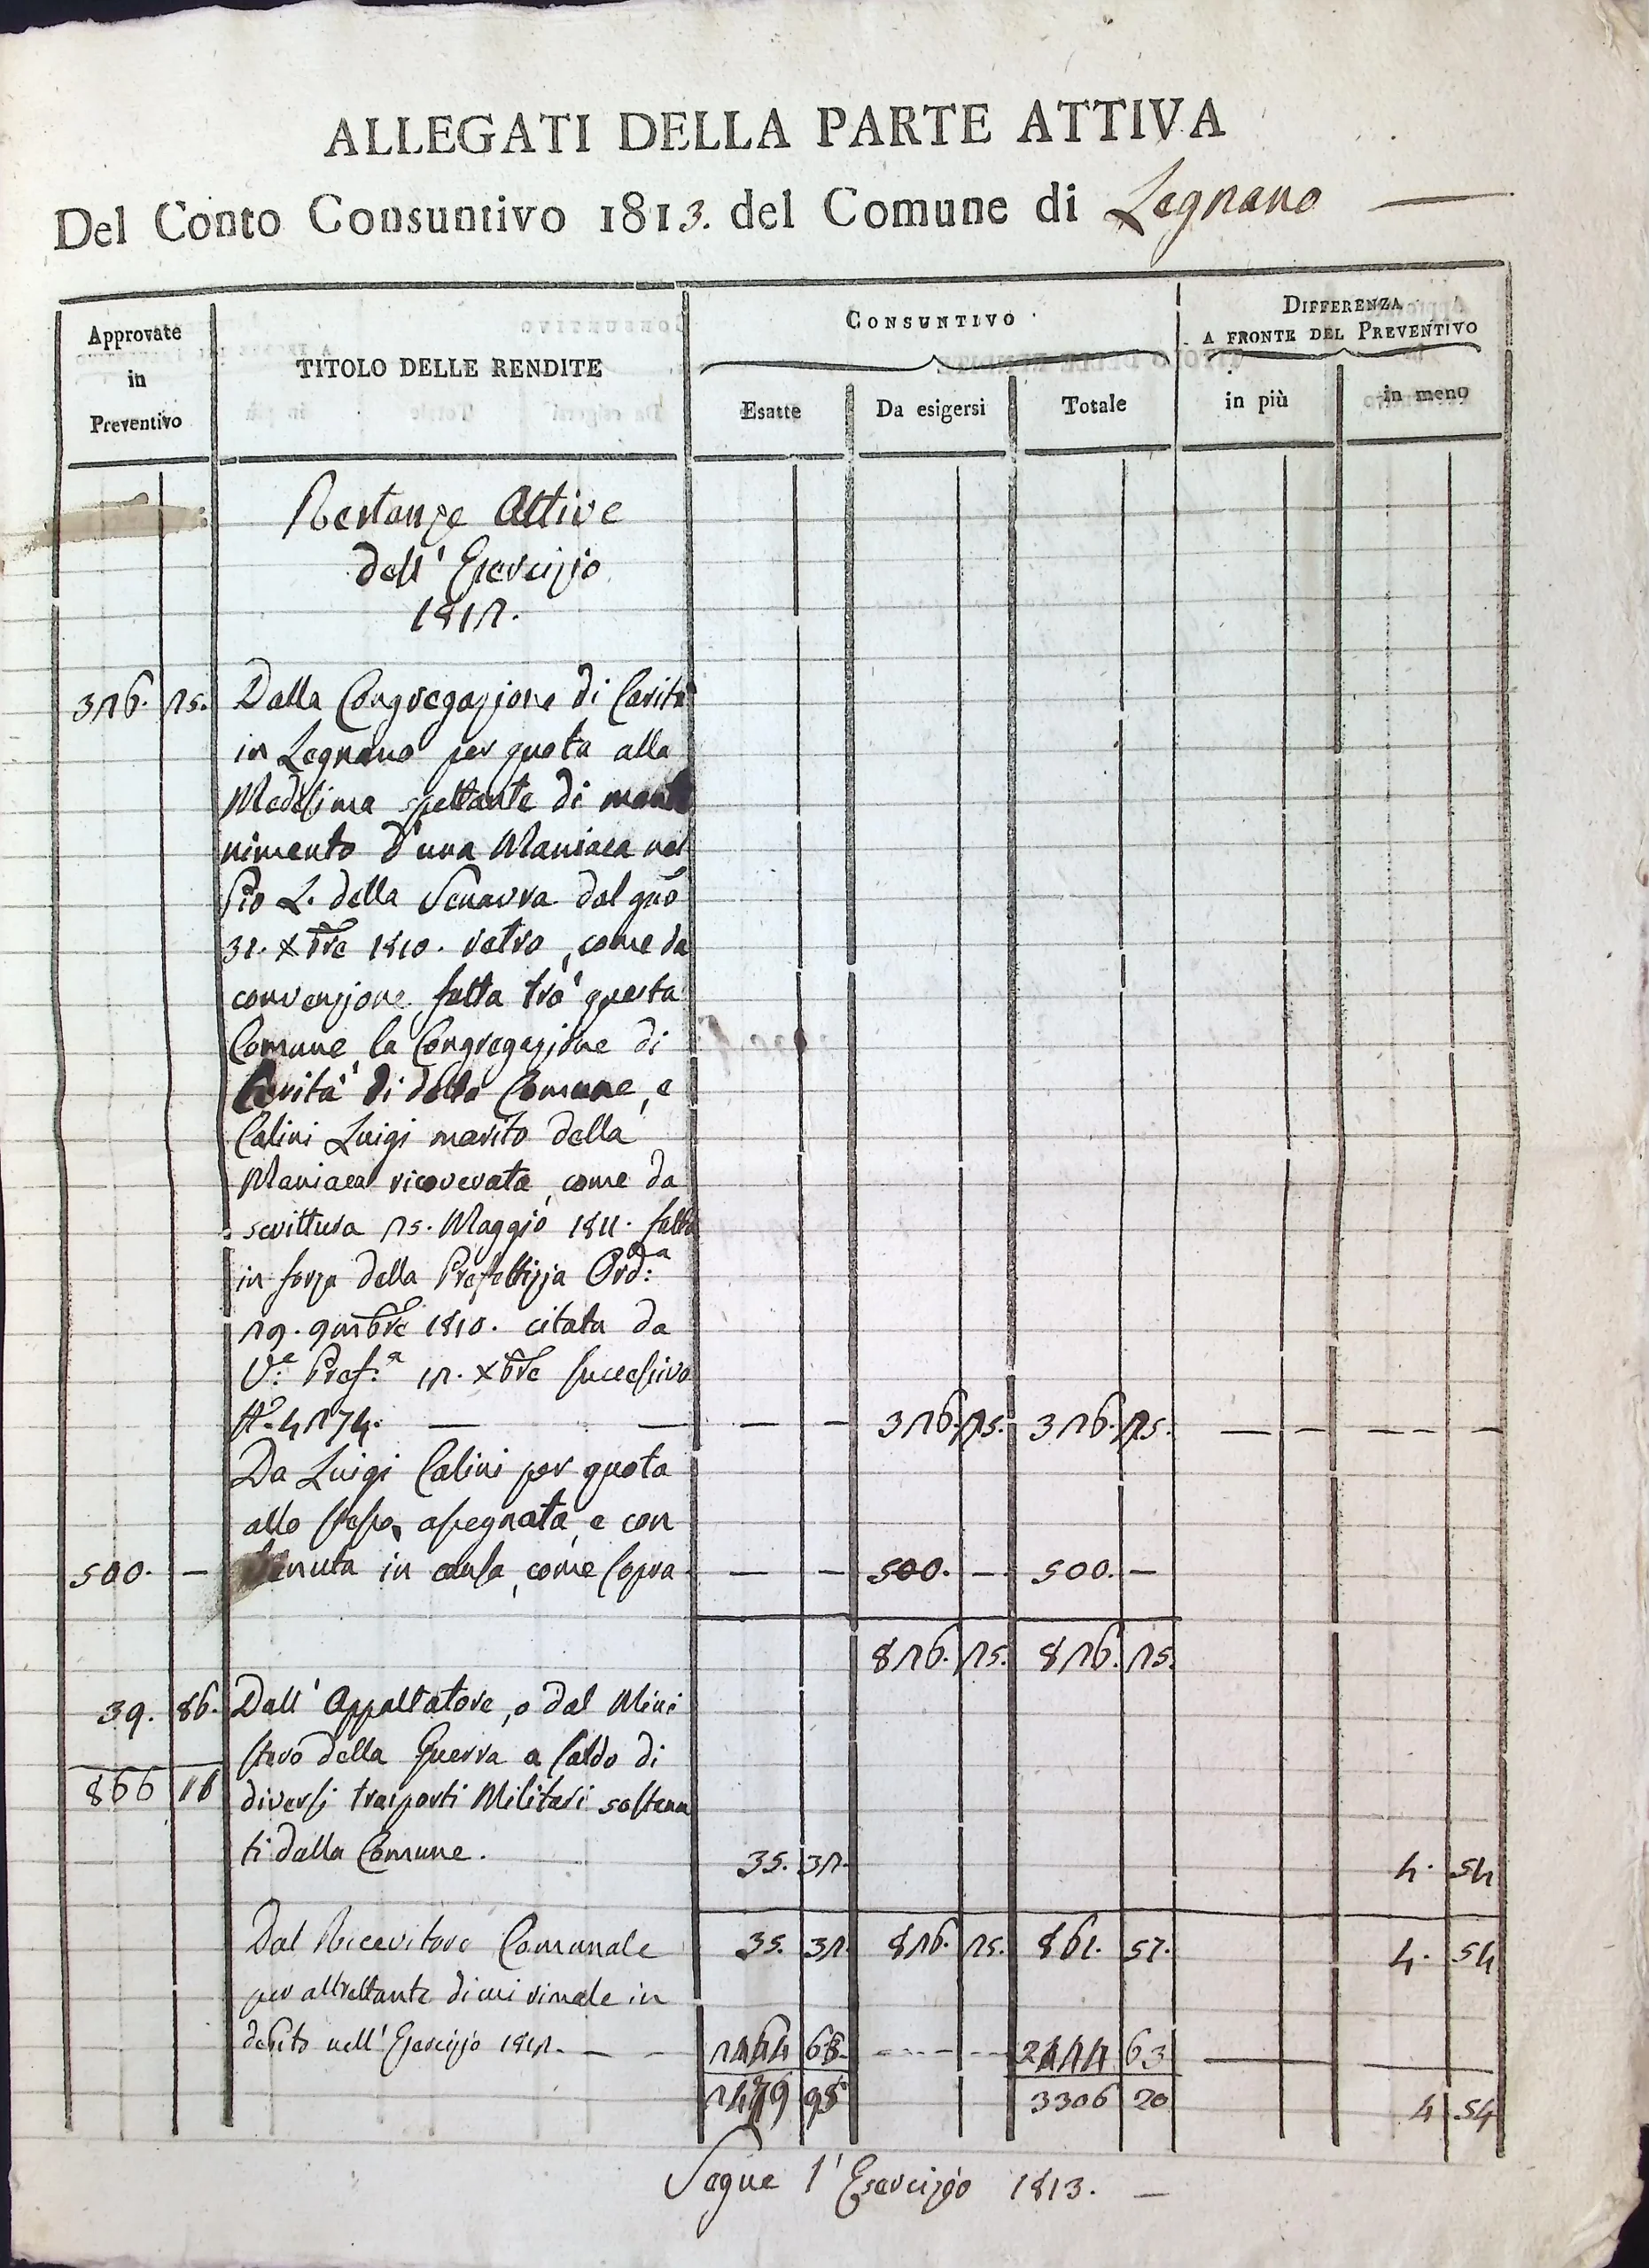 ALLEGATI DELLA PARTE ATTIVA
Del Conto Consuntivo 1813. del Comune di Legnano —
Approvate
in
Preventivo
TITOLO DELLE RENDITE
CONSUNTIVO
DIFFERENZA
A FRONTE DEL PREVENTIVO
Esatte Da esigersi Totale in più in meno
Restanze Attive
dell' Esercizio
1812.
326. 25. Dalla Congregazione di Carità
in Legnano per quota alla
Medesima spettante di mante
nimento d'una Maniaca nel
Pio L. della Senavra dal giõ
31. Xbre 1810. retro, come da
convenzione fatta trà questa
Comune, la Congregazione di
Carità di detto Comune, e
Calini Luigi marito della
Maniaca ricoverata, come da
scrittura 25. Maggio 1811. fatta
in forza della Prefettizia Ord:a
29. 9mbre 1810. citata da
V:e Pref:a 12. Xbre successivo
N.o 4274. — — — — 326. 25. 326. 25. — — — — —
Da Luigi Calini per quota
allo stesso assegnata, e con
500. — tenuta in causa, come sopra — — 500. — 500. —
826. 25. 826. 25.
39. 86. Dall' Appaltatore, o dal Mini
stero della Guerra a saldo di
866 11 diversi trasporti Militari sostenu
ti dalla Comune. 35. 32. 4. 54
Dal Ricevitore Comunale 35. 32. 826. 25. 861. 57. 4. 54
per altrettante di cui rimale in
debito nell' Esercizio 1812. — — 2444 63 - - - - - 2444 63 — —
2479 95 3306 20 4 54
Segue l' Esercizio 1813. —